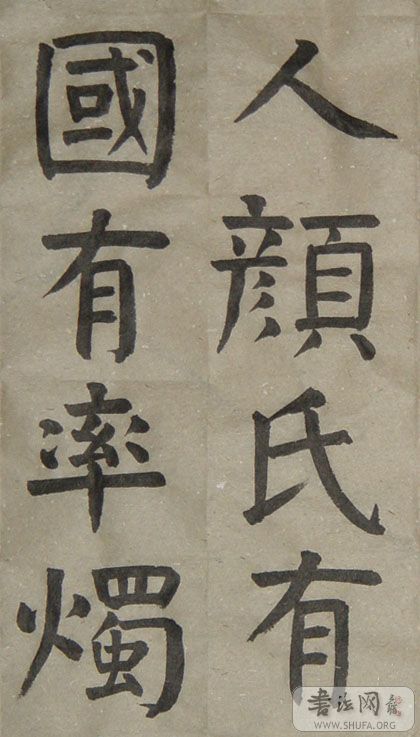 人顏氏有
國有率燭
书法网
WWW.SHUFA.ORG